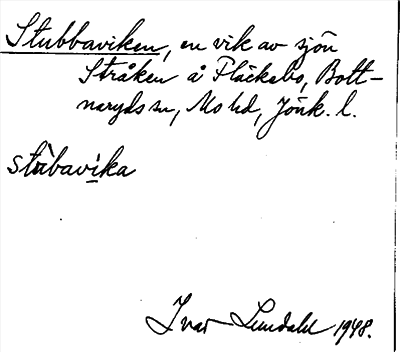 Stubbaviken, en vik av sjön
Stråken å Fläckebo, Bott-
naryds sn, Mo hd, Jönk. l.
stùbavika
Ivar Lundahl 1948.